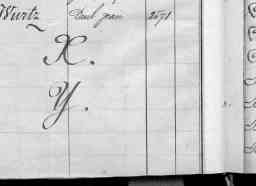 Wurtz Paul jean 2671
X.
Y.